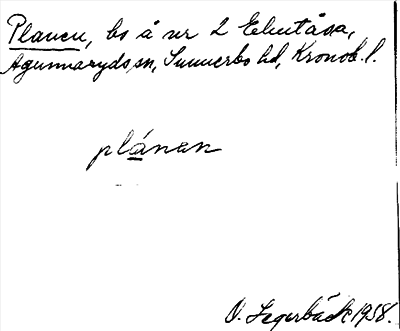 Planen, bs å nr 2 Eknäsa,
Agunnaryds sn, Sunnerbo hd, Kronob. l.
plánan
O. Segerbäck 1958.